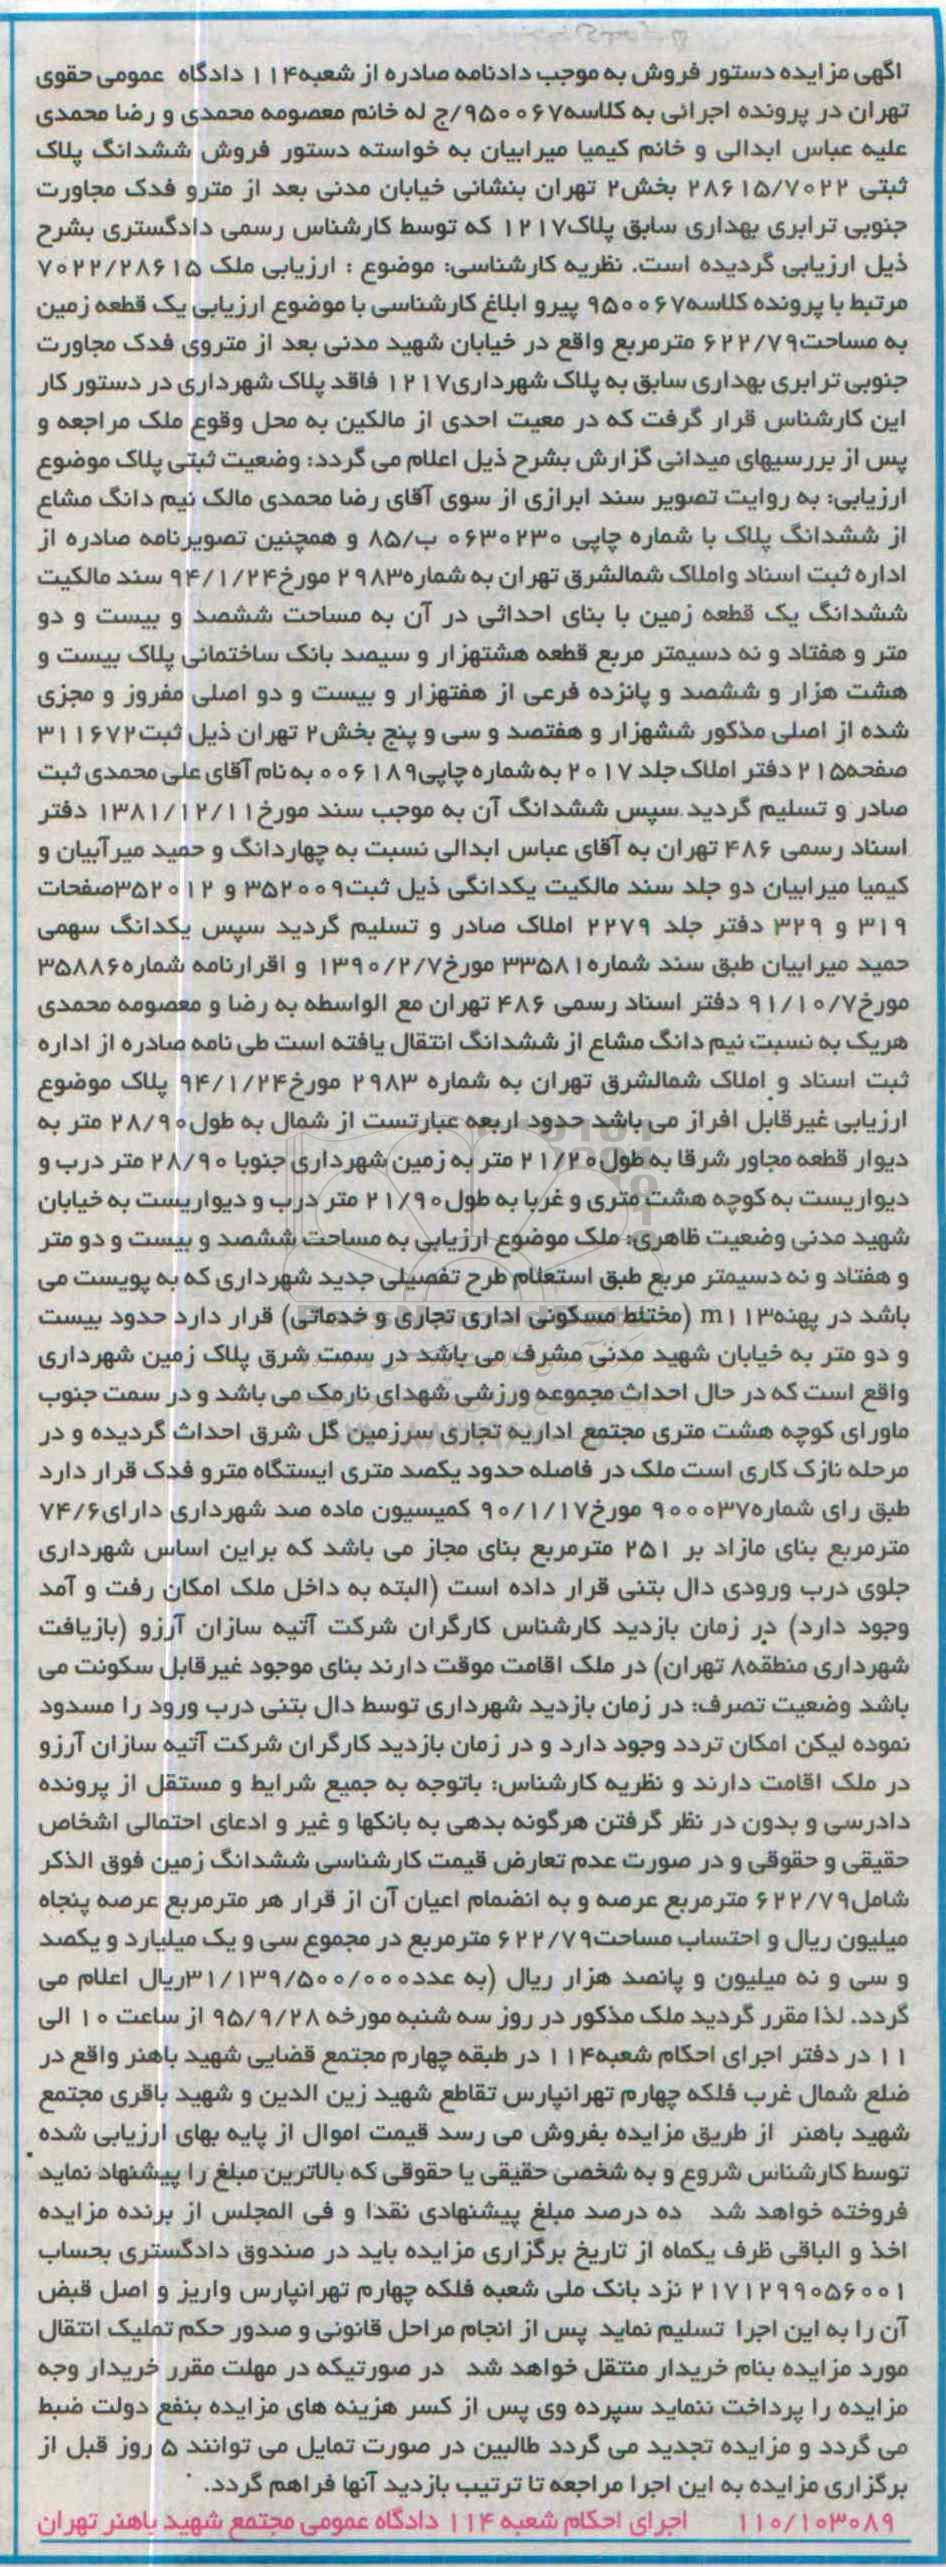 اگهی مزایده دستور فروش به موجب دادنامه صادره از شعبه۱۱۴ دادگاه عمومی حقوی
تهران در پرونده اجرائی به کلاسه۹۵۰۰۶۷/ج له خانم معصومه محمدی و رضا محمدی
علیه عباس ابدالی و خانم کیمیا میرابیان به خواسته دستور فروش ششدانگ پلاک
ثبتی ۲۸۶۱۵/۷۰۲۲ بخش۲ تهران بنشانی خیابان مدنی بعد از مترو فدک مجاورت
جنوبی ترابری بهداری سابق پلاک۱۲۱۷ که توسط کارشناس رسمی دادگستری بشرح
ذیل ارزیابی گردیده است. نظریه کارشناسی: موضوع : ارزیابی ملک ۷۰۲۲/۲۸۶۱۵
مرتبط با پرونده کلاسه۹۵۰۰۶۷ پیرو ابلاغ کارشناسی با موضوع ارزیابی یک قطعه زمین
به مساحت۶۲۲/۷۹ مترمربع واقع در خیابان شهید مدنی بعد از متروی فدک مجاورت
جنوبی ترابری بهداری سابق به پلاک شهرداری۱۲۱۷ فاقد پلاک شهرداری در دستور کار
این کارشناس قرار گرفت که در معیت احدی از مالکین به محل وقوع ملک مراجعه و
پس از بررسیهای میدانی گزارش بشرح ذیل اعلام می گردد: وضعیت ثبتی پلاک موضوع
ارزیابی: به روایت تصویر سند ابرازی از سوی آقای رضا محمدی مالک نیم دانگ مشاع
از ششدانگ پلاک با شماره چاپی ۰۶۳۰۲۳۰ ب/۸۵ و همچنین تصویرنامه صادره از
اداره ثبت اسناد واملاک شمالشرق تهران به شماره۲۹۸۳ مورخ۹۴/۱/۲۴ سند مالکیت
ششدانگ یک قطعه زمین با بنای احداثی در آن به مساحت ششصد و بیست و دو
متر و هفتاد و نه دسیمتر مربع قطعه هشتهزار و سیصد بانک ساختمانی پلاک بیست و
هشت هزار و ششصد و پانزده فرعی از هفتهزار و بیست و دو اصلی مفروز و مجزی
شده از اصلی مذکور ششهزار و هفتصد و سی و پنج بخش۲ تهران ذیل ثبت۳۱۱۶۷۲
صفحه۲۱۵ دفتر املاک جلد ۲۰۱۷ به شماره چاپی۰۰۶۱۸۹ به نام آقای علی محمدی ثبت
صادر و تسلیم گردید سپس ششدانگ آن به موجب سند مورخ۱۳۸۱/۱۲/۱۱ دفتر
اسناد رسمی ۴۸۶ تهران به آقای عباس ابدالی نسبت به چهاردانگ و حمید میرآبیان و
کیمیا میرابیان دو جلد سند مالکیت یکدانگی ذیل ثبت۳۵۲۰۰۹ و ۳۵۲۰۱۲صفحات
۳۱۹ و ۳۲۹ دفتر جلد ۲۲۷۹ املاک صادر و تسلیم گردید سپس یکدانگ سهمی
حمید میرابیان طبق سند شماره۳۳۵۸۱ مورخ۱۳۹۰/۲/۷ و اقرارنامه شماره۳۵۸۸۶
مورخ۹۱/۱۰/۷ دفتر اسناد رسمی ۴۸۶ تهران مع الواسطه به رضا و معصومه محمدی
هریک به نسبت نیم دانگ مشاع از ششدانگ انتقال یافته است طی نامه صادره از اداره
ثبت اسناد و املاک شمالشرق تهران به شماره ۲۹۸۳ مورخ۹۴/۱/۲۴ پلاک موضوع
ارزیابی غیرقابل افراز می باشد حدود اربعه عبارتست از شمال به طول۲۸/۹۰ متر به
دیوار قطعه مجاور شرقا به طول۲۱/۲۰ متر به زمین شهرداری جنوبا ۲۸/۹۰ متر درب و
دیواریست به کوچه هشت متری و غربا به طول۲۱/۹۰ متر درب و دیواریست به خیابان
شهید مدنی وضعیت ظاهری: ملک موضوع ارزیابی به مساحت ششصد و بیست و دو متر
و هفتاد و نه دسیمتر مربع طبق استعلام طرح تفصیلی جدید شهرداری که به پویست می
باشد در پهنه۱۱۳m (مختلط مسکونی اداری تجاری و خدماتی) قرار دارد حدود بیست
و دو متر به خیابان شهید مدنی مشرف می باشد در سمت شرق پلاک زمین شهرداری
واقع است که در حال احداث مجموعه ورزشی شهدای نارمک می باشد و در سمت جنوب
ماورای کوچه هشت متری مجتمع اداریه تجاری سرزمین گل شرق احداث گردیده و در
مرحله نازک کاری است ملک در فاصله حدود یکصد متری ایستگاه مترو فدک قرار دارد
طبق رای شماره۹۰۰۰۳۷ مورخ۹۰/۱/۱۷ کمیسیون ماده صد شهرداری دارای۷۴/۶
مترمربع بنای مازاد بر ۲۵۱ مترمربع بنای مجاز می باشد که براین اساس شهرداری
جلوی درب ورودی دال بتنی قرار داده است (البته به داخل ملک امکان رفت و آمد
وجود دارد) در زمان بازدید کارشناس کارگران شرکت آتیه سازان آرزو (بازیافت
شهرداری منطقه۸ تهران) در ملک اقامت موقت دارند بنای موجود غیرقابل سکونت می
باشد وضعیت تصرف: در زمان بازدید شهرداری توسط دال بتنی درب ورود را مسدود
نموده لیکن امکان تردد وجود دارد و در زمان بازدید کارگران شرکت آتیه سازان آرزو
در ملک اقامت دارند و نظریه کارشناس: باتوجه به جمیع شرایط و مستقل از پرونده
دادرسی و بدون در نظر گرفتن هرگونه بدهی به بانکها و غیر و ادعای احتمالی اشخاص
حقیقی و حقوقی و در صورت عدم تعارض قیمت کارشناسی ششدانگ زمین فوق الذکر
شامل۶۲۲/۷۹ مترمربع عرصه و به انضمام اعیان آن از قرار هر مترمربع عرصه پنجاه
میلیون ریال و احتساب مساحت۶۲۲/۷۹ مترمربع در مجموع سی و یک میلیارد و یکصد
و سی و نه میلیون و پانصد هزار ریال (به عدد۳۱/۱۳۹/۵۰۰/۰۰۰ریال اعلام می
گردد. لذا مقرر گردید ملک مذکور در روز سه شنبه مورخه ۹۵/۹/۲۸ از ساعت ۱۰ الی
۱۱ در دفتر اجرای احکام شعبه۱۱۴ در طبقه چهارم مجتمع قضایی شهید باهنر واقع در
ضلع شمال غرب فلکه چهارم تهرانپارس تقاطع شهید زین الدین و شهید باقری مجتمع
شهید باهنر از طریق مزایده بفروش می رسد قیمت اموال از پایه بهای ارزیابی شده
توسط کارشناس شروع و به شخصی حقیقی یا حقوقی که بالاترین مبلغ را پیشنهاد نماید
فروخته خواهد شد ده درصد مبلغ پیشنهادی نقدا و فی المجلس از برنده مزایده
اخذ و الباقی ظرف یکماه از تاریخ برگزاری مزایده باید در صندوق دادگستری بحساب
۲۱۷۱۲۹۹۰۵۶۰۰۱ نزد بانک ملی شعبه فلکه چهارم تهرانپارس واریز و اصل قبض
آن را به این اجرا تسلیم نماید پس از انجام مراحل قانونی و صدور حکم تملیک انتقال
مورد مزایده بنام خریدار منتقل خواهد شد در صورتیکه در مهلت مقرر خریدار وجه
مزایده را پرداخت ننماید سپرده وی پس از کسر هزینه های مزایده بنفع دولت ضبط
می گردد و مزایده تجدید می گردد طالبین در صورت تمایل می توانند ۵ روز قبل از
برگزاری مزایده به این اجرا مراجعه تا ترتیب بازدید آنها فراهم گردد.
۱۱۰/۱۰۳۰۸۹ اجرای احکام شعبه ۱۱۴ دادگاه عمومی مجتمع شهید باهنر تهران